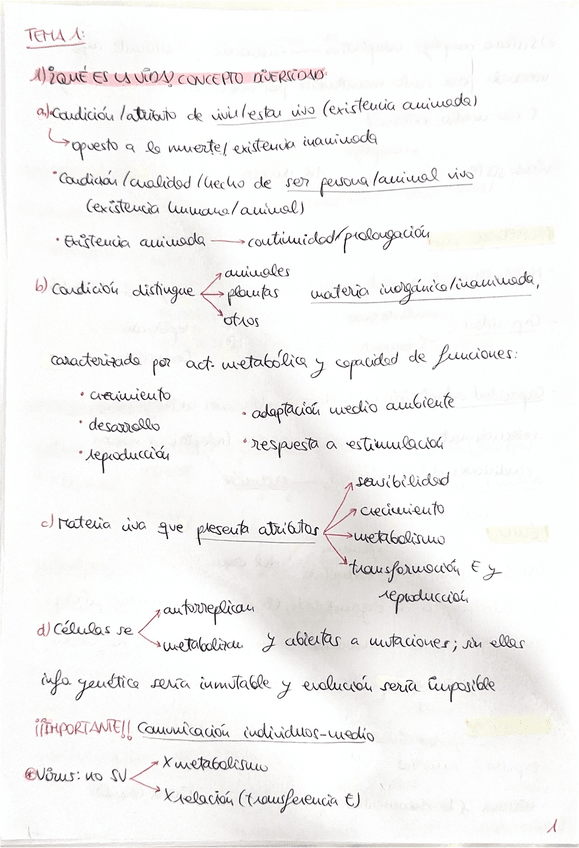 TEMA 1:
1) ¿QUÉ ES LA VIDA? CONCEPTO DIVERSIDAD:
a) Condición/atributo de vivir/estar vivo (existencia animada)
↳ opuesto a la muerte/existencia inanimada
· Condición/cualidad/hecho de ser persona/animal vivo
(existencia humana/animal)
· Existencia animada → continuidad/prolongación
animales
b) Condición distingue plantas materia inorgánica/inanimada,
otros
caracterizada por act. metabólica y capacidad de funciones:
· crecimiento
· adaptación medio ambiente
· desarrollo
· respuesta a estimulación
· reproducción
sensibilidad
crecimiento
c) Materia viva que presenta atributos metabolismo
transformación E y
reproducción
autorreplican
d) Células se metabolizan y abiertas a mutaciones; sin ellas
info genética sería inmutable y evolución sería imposible
¡¡IMPORTANTE!! Comunicación individuos-medio
Virus: no SV X metabolismo
X relación (transferencia E)
1